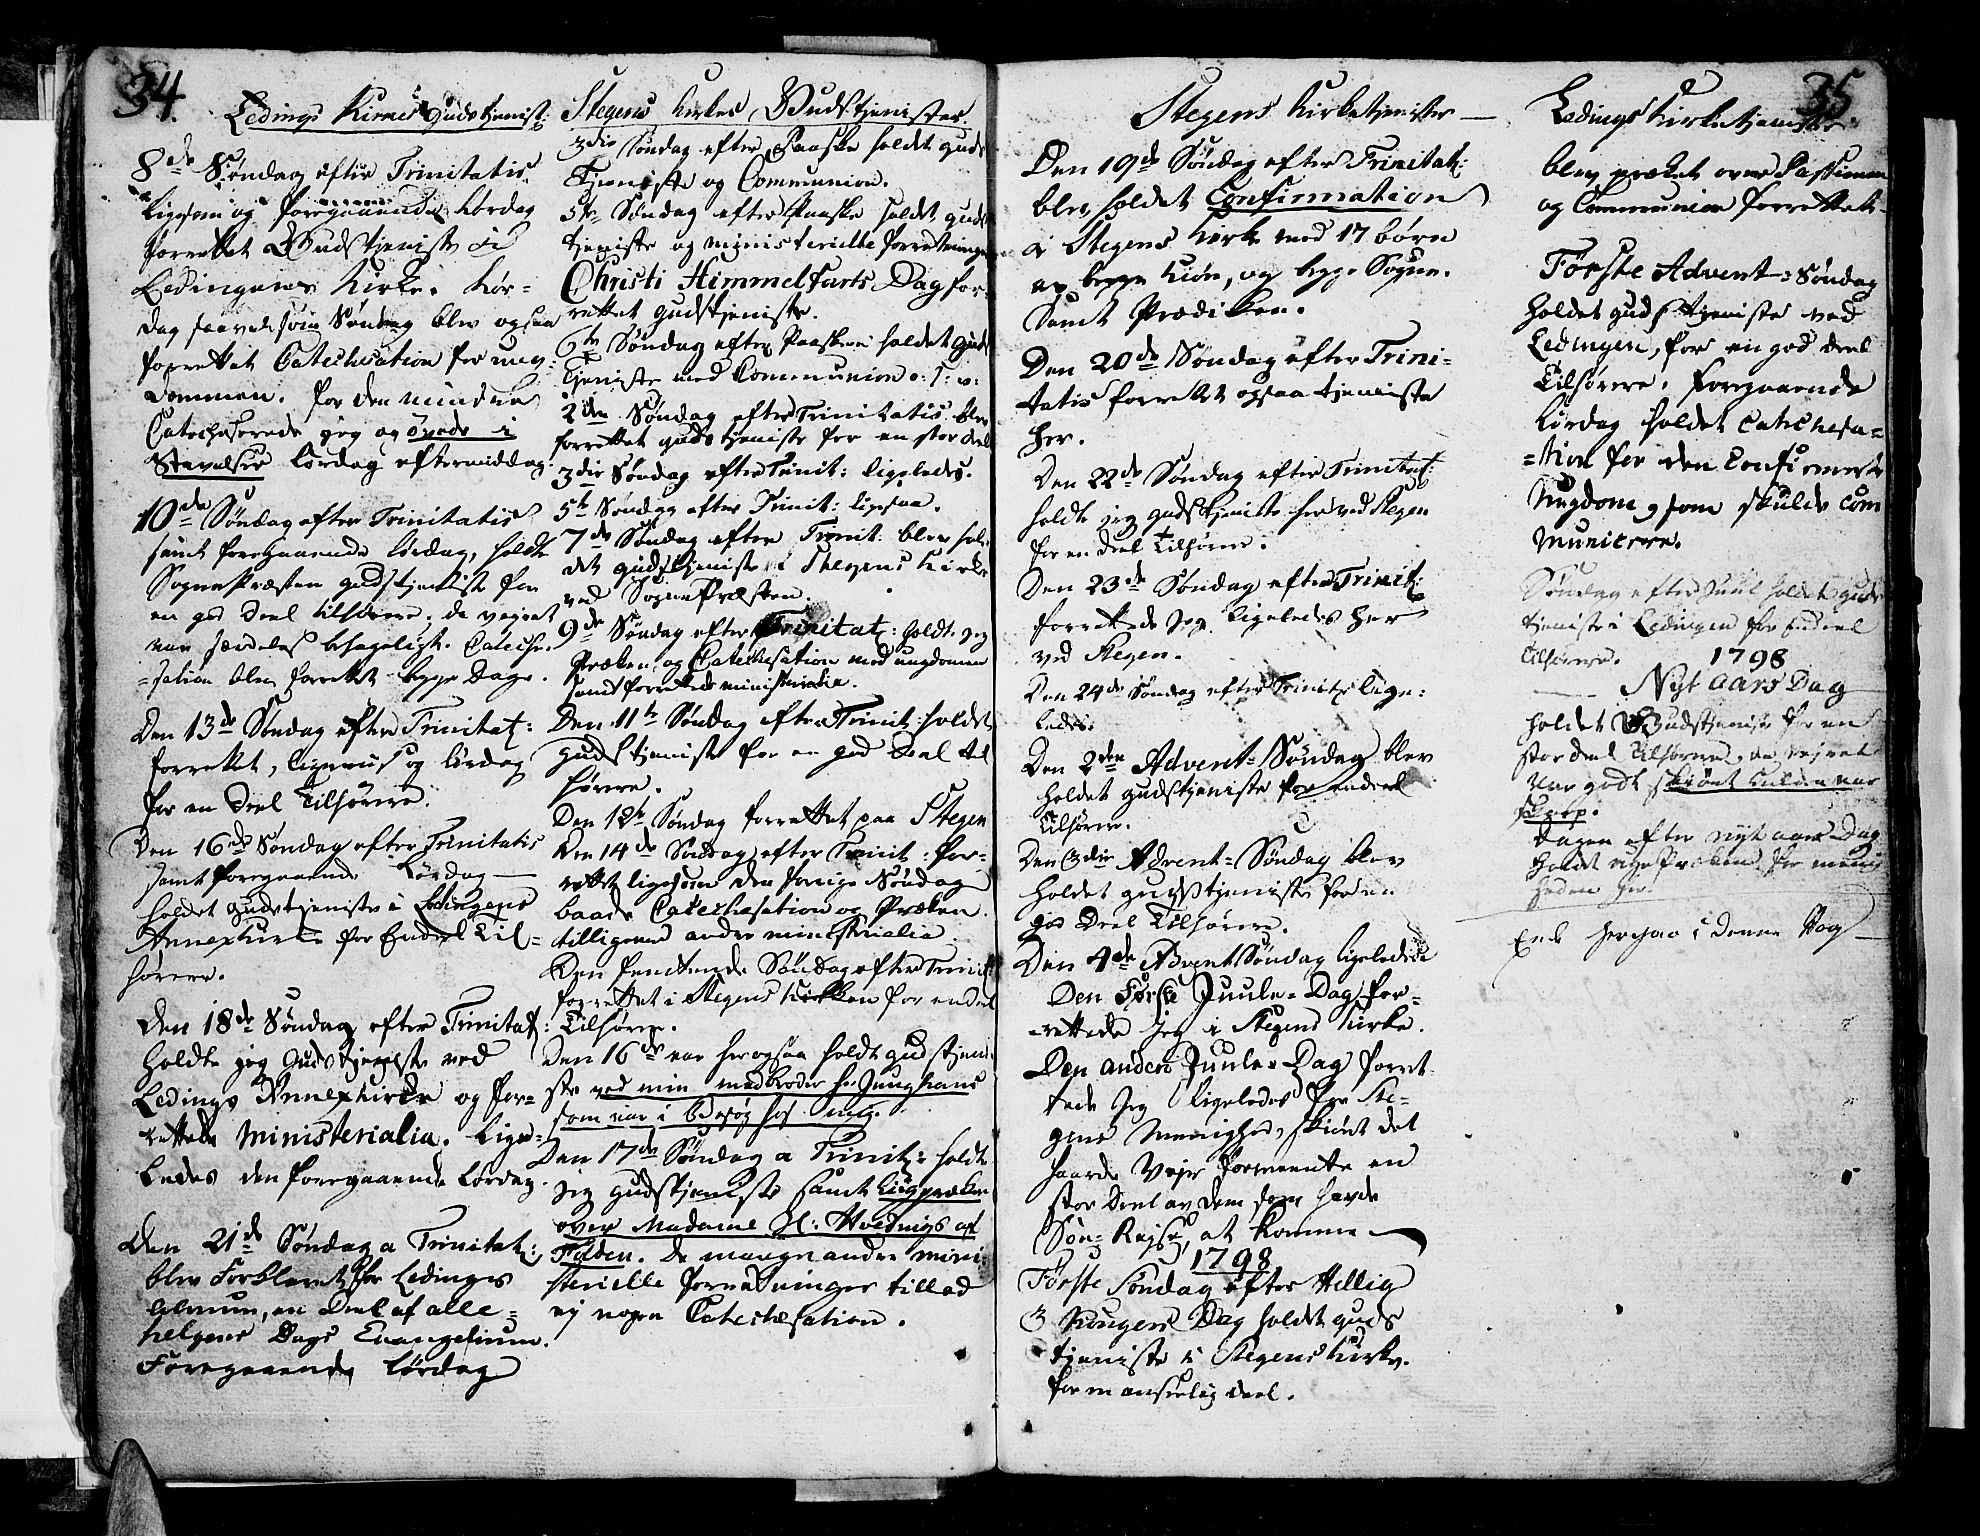 34.
Ledings Kirkes Gudstjenist:
8de Søndag efter Trinitatis
ligesom og foregaaende Lørdag
forrettet Gudstjeniste i
Ledingens Kirke. Lør-
dag saavelsom Søndag blev ogsaa
forrettet Catechisation for ung-
dommen. for den mindre
Catechiserede jeg og øvede i
Stavelser Lørdag eftermiddag.
10de Søndag efter Trinitatis
samt foregaaende Lørdag, holdt
Sognepræsten gudstjeniste for
en god Deel tilhørere, da vejret
var særdeles behageligt. Catechi-
=sation blev forrettet begge Dage.
Den 13de Søndag efter Trinitat:
forrettet, ligeviis og Lørdag
for en Deel Tilhørere.
Den 16de Søndag efter Trinitatis
samt foregaaende Lørdag
holdet gudstjeniste i Ledingens
Annexkirke for Endeel Til-
hørere.
Den 18de Søndag efter Trinitat:
holdt jeg Gudstjeniste ved
Ledings Annexkirke og for-
rettede ministerialia. Lige-
ledes den foregaaende Lørdag.
Den 21de Søndag a Trinitat:
blev Forklaret for Ledinges
Almue, en Deel af alle-
helgens Dags Evangelium.
Foregaaende Lørdag
Stegens Kirkes Gudstjenister
3die Søndag efter Paaske holdet guds
Tjeneste og Communion.
5te Søndag efter Paaske holdet guds
tjeniste og ministerielle forretninger
Christi Himmelfarts Dag for-
rettet gudstjeniste.
6te Søndag efter Paaske holdet guds
tjeniste med Communion
2den Søndag efter Trinitatis blev
forrettet gudstjeniste for en stor Deel
3die Søndag efter Trinit: ligeledes.
5te Søndag efter Trinit: ligesaa.
7de Søndag efter Trinit: blev hol-
det gudstjeniste i Stegens Kirke
ved Sognepræsten.
9de Søndag efter Trinitat: holdt jeg
Præken og Catechisation med ungdommen
samt forrettede ministerialia.
Den 11te Søndag efter Trinit: holdet
gudstjeniste for en god Deel til
hørere.
Den 12te Søndag forrettet paa Stegen
Den 14de Søndag efter Trinit: for-
rettet ligesom den forrige Søndag
baade Catechisation og Præken
tilligemed andre ministerialia.
Den femtende Søndag efter Trinit:
forrettet i Stegens Kirken for endeel
Tilhørere.
Den 16de var her ogsaa holdt gudstjeni-
ste ved min medbroder Hr. Junghans
som var i besøg hos mig.
Den 17de Søndag a Trinit: holdt
jeg gudstjeniste samt Liigpræken
over Madame
Folden. De mange andre mini-
sterielle forretninger tillod
ej nogen Catechisation.
35
Stegens Kirketjenister
Den 19de Søndag efter Trinitat:
blev holdet Confirmation
i Stegens Kirke med 17 børn
av begge Kiøn, og begge Sogne.
Samt Prædiken.
Den 20de Søndag efter Trini-
tatis forrettet ogsaa tjeniste
her.
Den 22de Søndag efter Trinitat:
holdt jeg gudstjeniste her ved Stegen
for en Deel Tilhørere.
Den 23de Søndag efter Trinit:
forrettede jeg ligeledes her
ved Stegen.
Den 24de Søndag efter Trinit: lige-
ledes.
Den 2den Advent-Søndag blev
holdet gudstjeniste for endeel
Tilhørere.
Den 3die Advent-Søndag blev
holdet gudstjeniste for en
god Deel Tilhørere.
Den 4de Advent Søndag ligeledes
Den Første Juule-Dag for-
rettede jeg i Stegens Kirke.
Den anden Juule-Dag forret-
tede jeg ligeledes for Ste-
gens Menighed, skiønt det
haarde Vejr formeente en
stor Deel av dem som havde
Søe-Rejse, at komme
1798
Første Søndag efter Hellig
3 Kongers Dag holdet guds
tjeniste i Stegens Kirke.
for en anseelig deel.
Ledings Kirketjenister
blev præket over Passionen
og Communion forrettet.
Første Advent-Søndag
holdet gudstjeniste ved
Ledingen, for en god deel
Tilhørere. foregaaende
Lørdag holdet Catechesa-
=tion for den Confirmerte
Ungdom, som skulde Com
Municere.
Søndag efter Juul holdet guds
tjeniste i Ledingen for Endeel
Tilhørere.
1798
Nyt aars Dag
holdet Gudstjeniste for en
stor deel Tilhørere, da vejret
var godt skiønt Kulden var
skarp.
Dagen efter nyt aars Dag
holdt jeg Præken for menig
heden her.
Ende herpaa i denne Bog